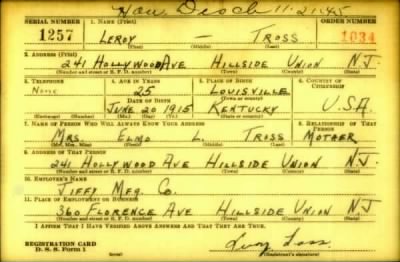 Hon. Disch. 11-21-45
SERIAL NUMBER 1. NAME (Print) ORDER NUMBER
1257 LEROY — TROSS 1034
(First) (Middle) (Last)
2. ADDRESS (Print)
241 HOLLYWOOD AVE HILLSIDE UNION N.J.
(Number and street or R. F. D. number) (Town) (County) (State)
3. TELEPHONE 4. AGE IN YEARS 5. PLACE OF BIRTH 6. COUNTRY OF CITIZENSHIP
None 25 LOUISVILLE
DATE OF BIRTH (Town or county)
JUNE 20 1915 KENTUCKY U.S.A.
(Exchange) (Number) (Mo.) (Day) (Yr.) (State or country)
7. NAME OF PERSON WHO WILL ALWAYS KNOW YOUR ADDRESS 8. RELATIONSHIP OF THAT PERSON
MRS. ELMO L. TROSS MOTHER
(Mr., Mrs., Miss) (First) (Middle) (Last)
9. ADDRESS OF THAT PERSON
241 HOLLYWOOD AVE HILLSIDE UNION N.J.
(Number and street or R. F. D. number) (Town) (County) (State)
10. EMPLOYER'S NAME
JIFFY MFG. CO.
11. PLACE OF EMPLOYMENT OR BUSINESS
360 FLORENCE AVE HILLSIDE UNION N.J.
(Number and street or R. F. D. number) (Town) (County) (State)
I AFFIRM THAT I HAVE VERIFIED ABOVE ANSWERS AND THAT THEY ARE TRUE.
REGISTRATION CARD
D. S. S. Form 1 (Registrant's signature)